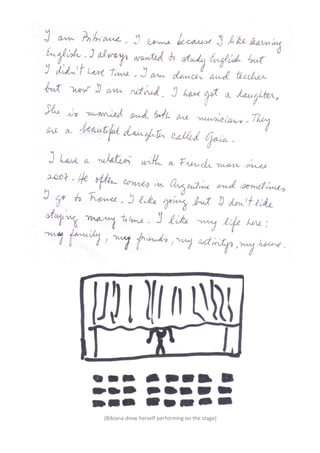 I am Bibiana. I come because I like learning
English. I always wanted to study English but
I didn't have time. I am dancer and teacher
but now I am retired. I have got a daughter.
She is married and both are musicians. They
are a beautiful daughter called Gaia.
I have a relation with a French man since
2007. He often comes in Argentine and sometimes
I go to France. I like going but I don't like
staying many time. I like my life here:
my family, my friends, my activitys, my house.
(Bibiana drew herself performing on the stage)